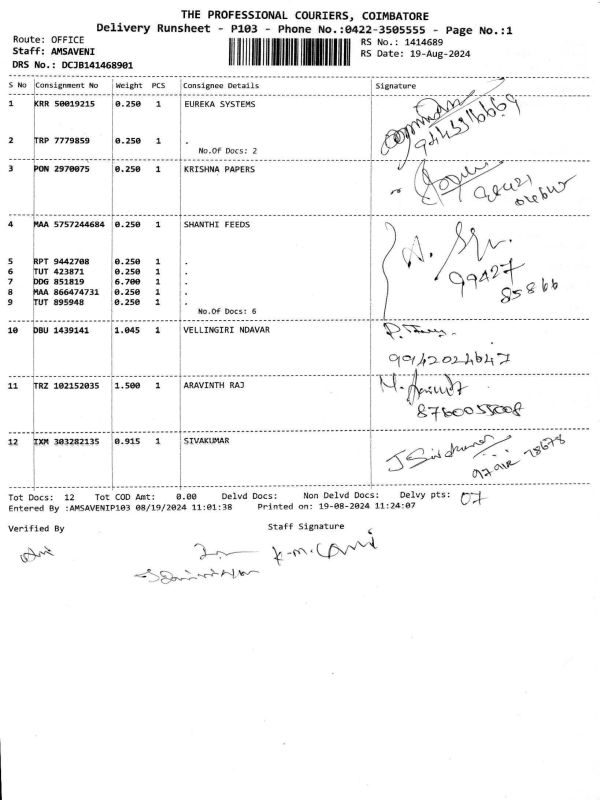 THE PROFESSIONAL COURIERS, COIMBATORE
Delivery Runsheet - P103 - Phone No.:0422-3505555 - Page No.:1
Route: OFFICE
RS No.: 1414689
Staff: AMSAVENI
RS Date: 19-Aug-2024
DRS No.: DCJB141468901
S No Consignment No Weight PCS Consignee Details Signature
1 KRR 50019215 0.250 1 EUREKA SYSTEMS
2 TRP 7779859 0.250 1 .
No.Of Docs: 2
3 PON 2970075 0.250 1 KRISHNA PAPERS
4 MAA 5757244684 0.250 1 SHANTHI FEEDS
5 RPT 9442708 0.250 1 .
6 TUT 423871 0.250 1 .
7 DDG 851819 6.700 1 .
99427
8 MAA 866474731 0.250 1 .
85866
9 TUT 895948 0.250 1 .
No.Of Docs: 6
10 DBU 1439141 1.045 1 VELLINGIRI NDAVAR
9942024647
11 TRZ 102152035 1.500 1 ARAVINTH RAJ
8760055008
12 IXM 303282135 0.915 1 SIVAKUMAR
J Sivakumar
Tot Docs: 12 Tot COD Amt: 0.00 Delvd Docs: Non Delvd Docs: Delvy pts: 07
Entered By :AMSAVENIP103 08/19/2024 11:01:38 Printed on: 19-08-2024 11:24:07
Verified By Staff Signature